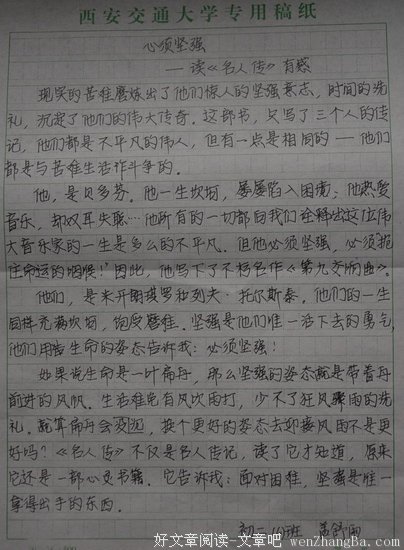 西安交通大学专用稿纸
心须坚强
——读《名人传》有感
现实的苦难磨炼出了他们惊人的坚强意志，时间的洗
礼，沉淀了他们的伟大传奇。这部书，只写了三个人的传
记，他们都是不平凡的伟人，但有一点是相同的——他们
都是与苦难生活作斗争的。
他，是贝多芬。他一生坎坷，屡屡陷入困境，他热爱
音乐，却双耳失聪…他所有的一切都向我们诠释出这位伟
大音乐家的一生是多么的不平凡。但他必须坚强，必须扼
住命运的咽喉！因此，他写下了不朽名作《第九交响曲》。
他们，是米开朗琪罗和列夫·托尔斯泰。他们的一生
同样充满坎坷，饱受磨难。坚强是他们唯一活下去的勇气，
他们用生命的姿态告诉我：必须坚强！
如果说生命是一叶扁舟，那么坚强的姿态就是带着舟
前进的风帆。生活难免有风吹雨打，少不了狂风骤雨的洗
礼。就算扁舟会沉没，换个更好的姿态去迎接风雨不是更
好吗？《名人传》不仅是名人传记，读了它才知道，原来
它还是一部心灵书籍。它告诉我：面对困难，坚强是唯一
拿得出手的东西。
初二 班
好文章阅读-文章吧 wenZhangBa.com